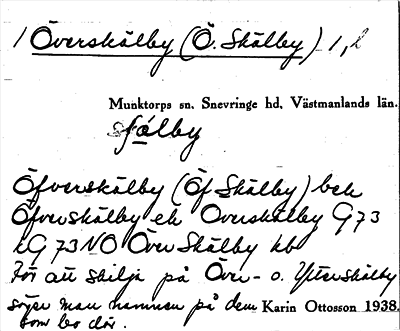 1 Överskälby (Ö. Skälby) 1,2
Munktorps sn. Snevringe hd, Västmanlands län.
Öfverskälby (Öf Skälby) bek
Öfverskälby ek Överskälby G73
kG 73NO Över Skälby hb
För att skilja på Över- o. Ytterskälby
säger man namnen på dem
som bo där.
Karin Ottosson 1938